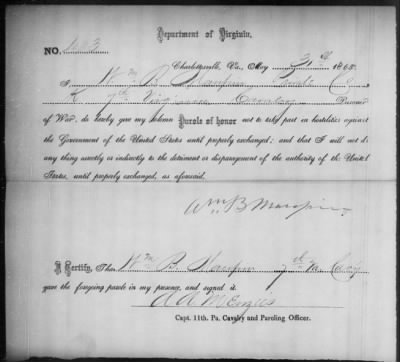 Department of Virginia,
NO.
Charlottesville, Va., May 1865.
I Wm B. Private Co.
K 7th Virginia Cavalry Prisoner
of War, do hereby give my solemn Parole of honor not to take part in hostilities against
the Government of the United States until properly exchanged; and that I will not do
any thing directly or indirectly to the detriment or disparagement of the authority of the United
States, until properly exchanged, as aforesaid.
Wm B
I Certify, That Wm B. 7th Va Cav'y
gave the foregoing parole in my presence, and signed it.
Capt. 11th. Pa. Cavalry and Paroling Officer.